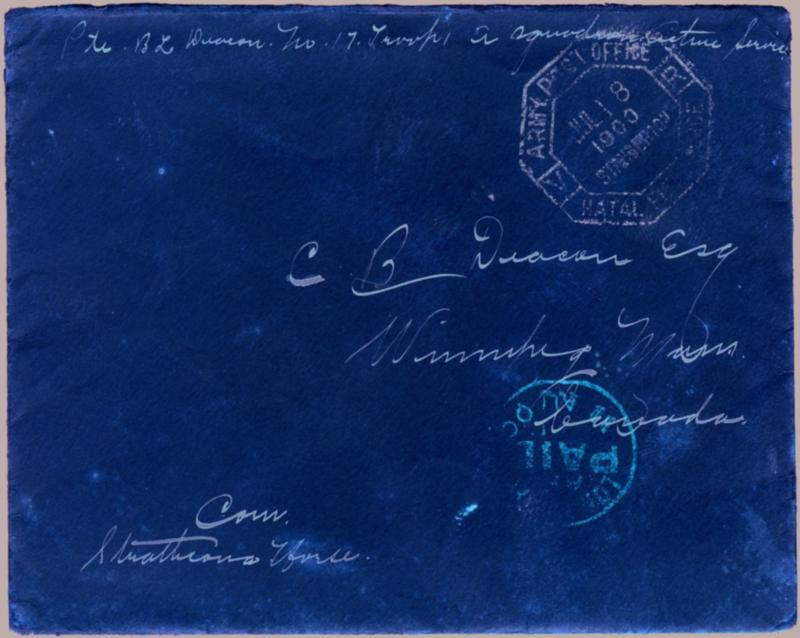 Pte. B L Deacon. No. 17. Troop 1 A squadron Active Service
ARMY POST OFFICE
JUL 18
1900
NATAL
C B Deacon Esq
Winnipeg Man.
Canada.
PAID
Com.
Strathcona Horse.